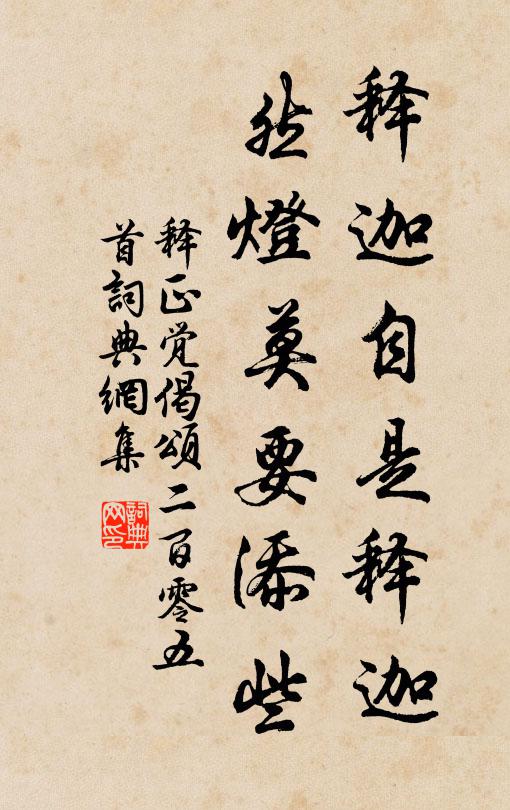 释迦自是释迦
然燈莫要添些
释正觉偈頌二百零五
首詞典網集
詞典
网印